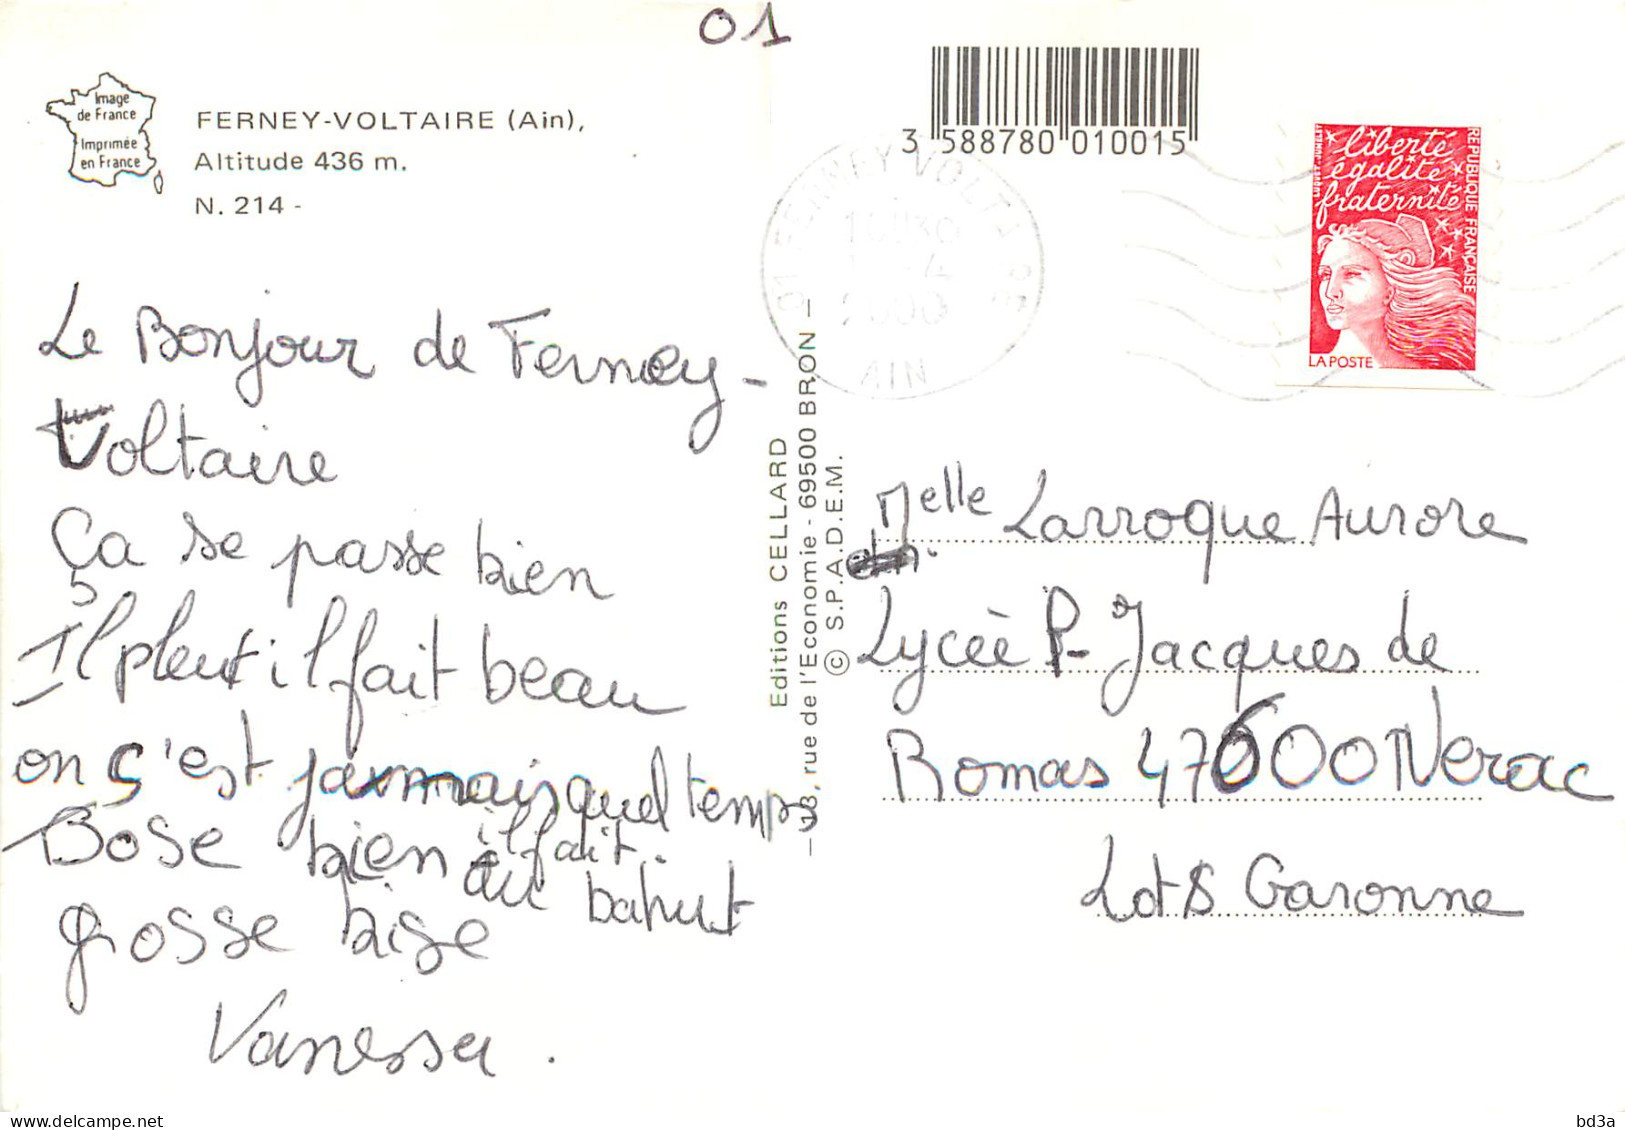 01
Image
de France
Imprimée
en France
FERNEY-VOLTAIRE (Ain),
Altitude 436 m.
N. 214 -
Le Bonjour de Ferney-
Voltaire
Ça se passe bien
Il pleut il fait beau
on s'est jamais quel temps
il fait.
Bose bien au bahut
grosse bise
Vanessa.
Editions CELLARD
rue de l'Economie - 69500 BRON —
© S.P.A.D.E.M.
3 588780 010015
01 FERNEY VOLTAIRE
2000
AIN
liberté
égalité
fraternité
REPUBLIQUE FRANÇAISE
LA POSTE
Melle Larroque Aurore
Lycée P- Jacques de
Romas 47600 Nerac
Lot & Garonne
bd3a